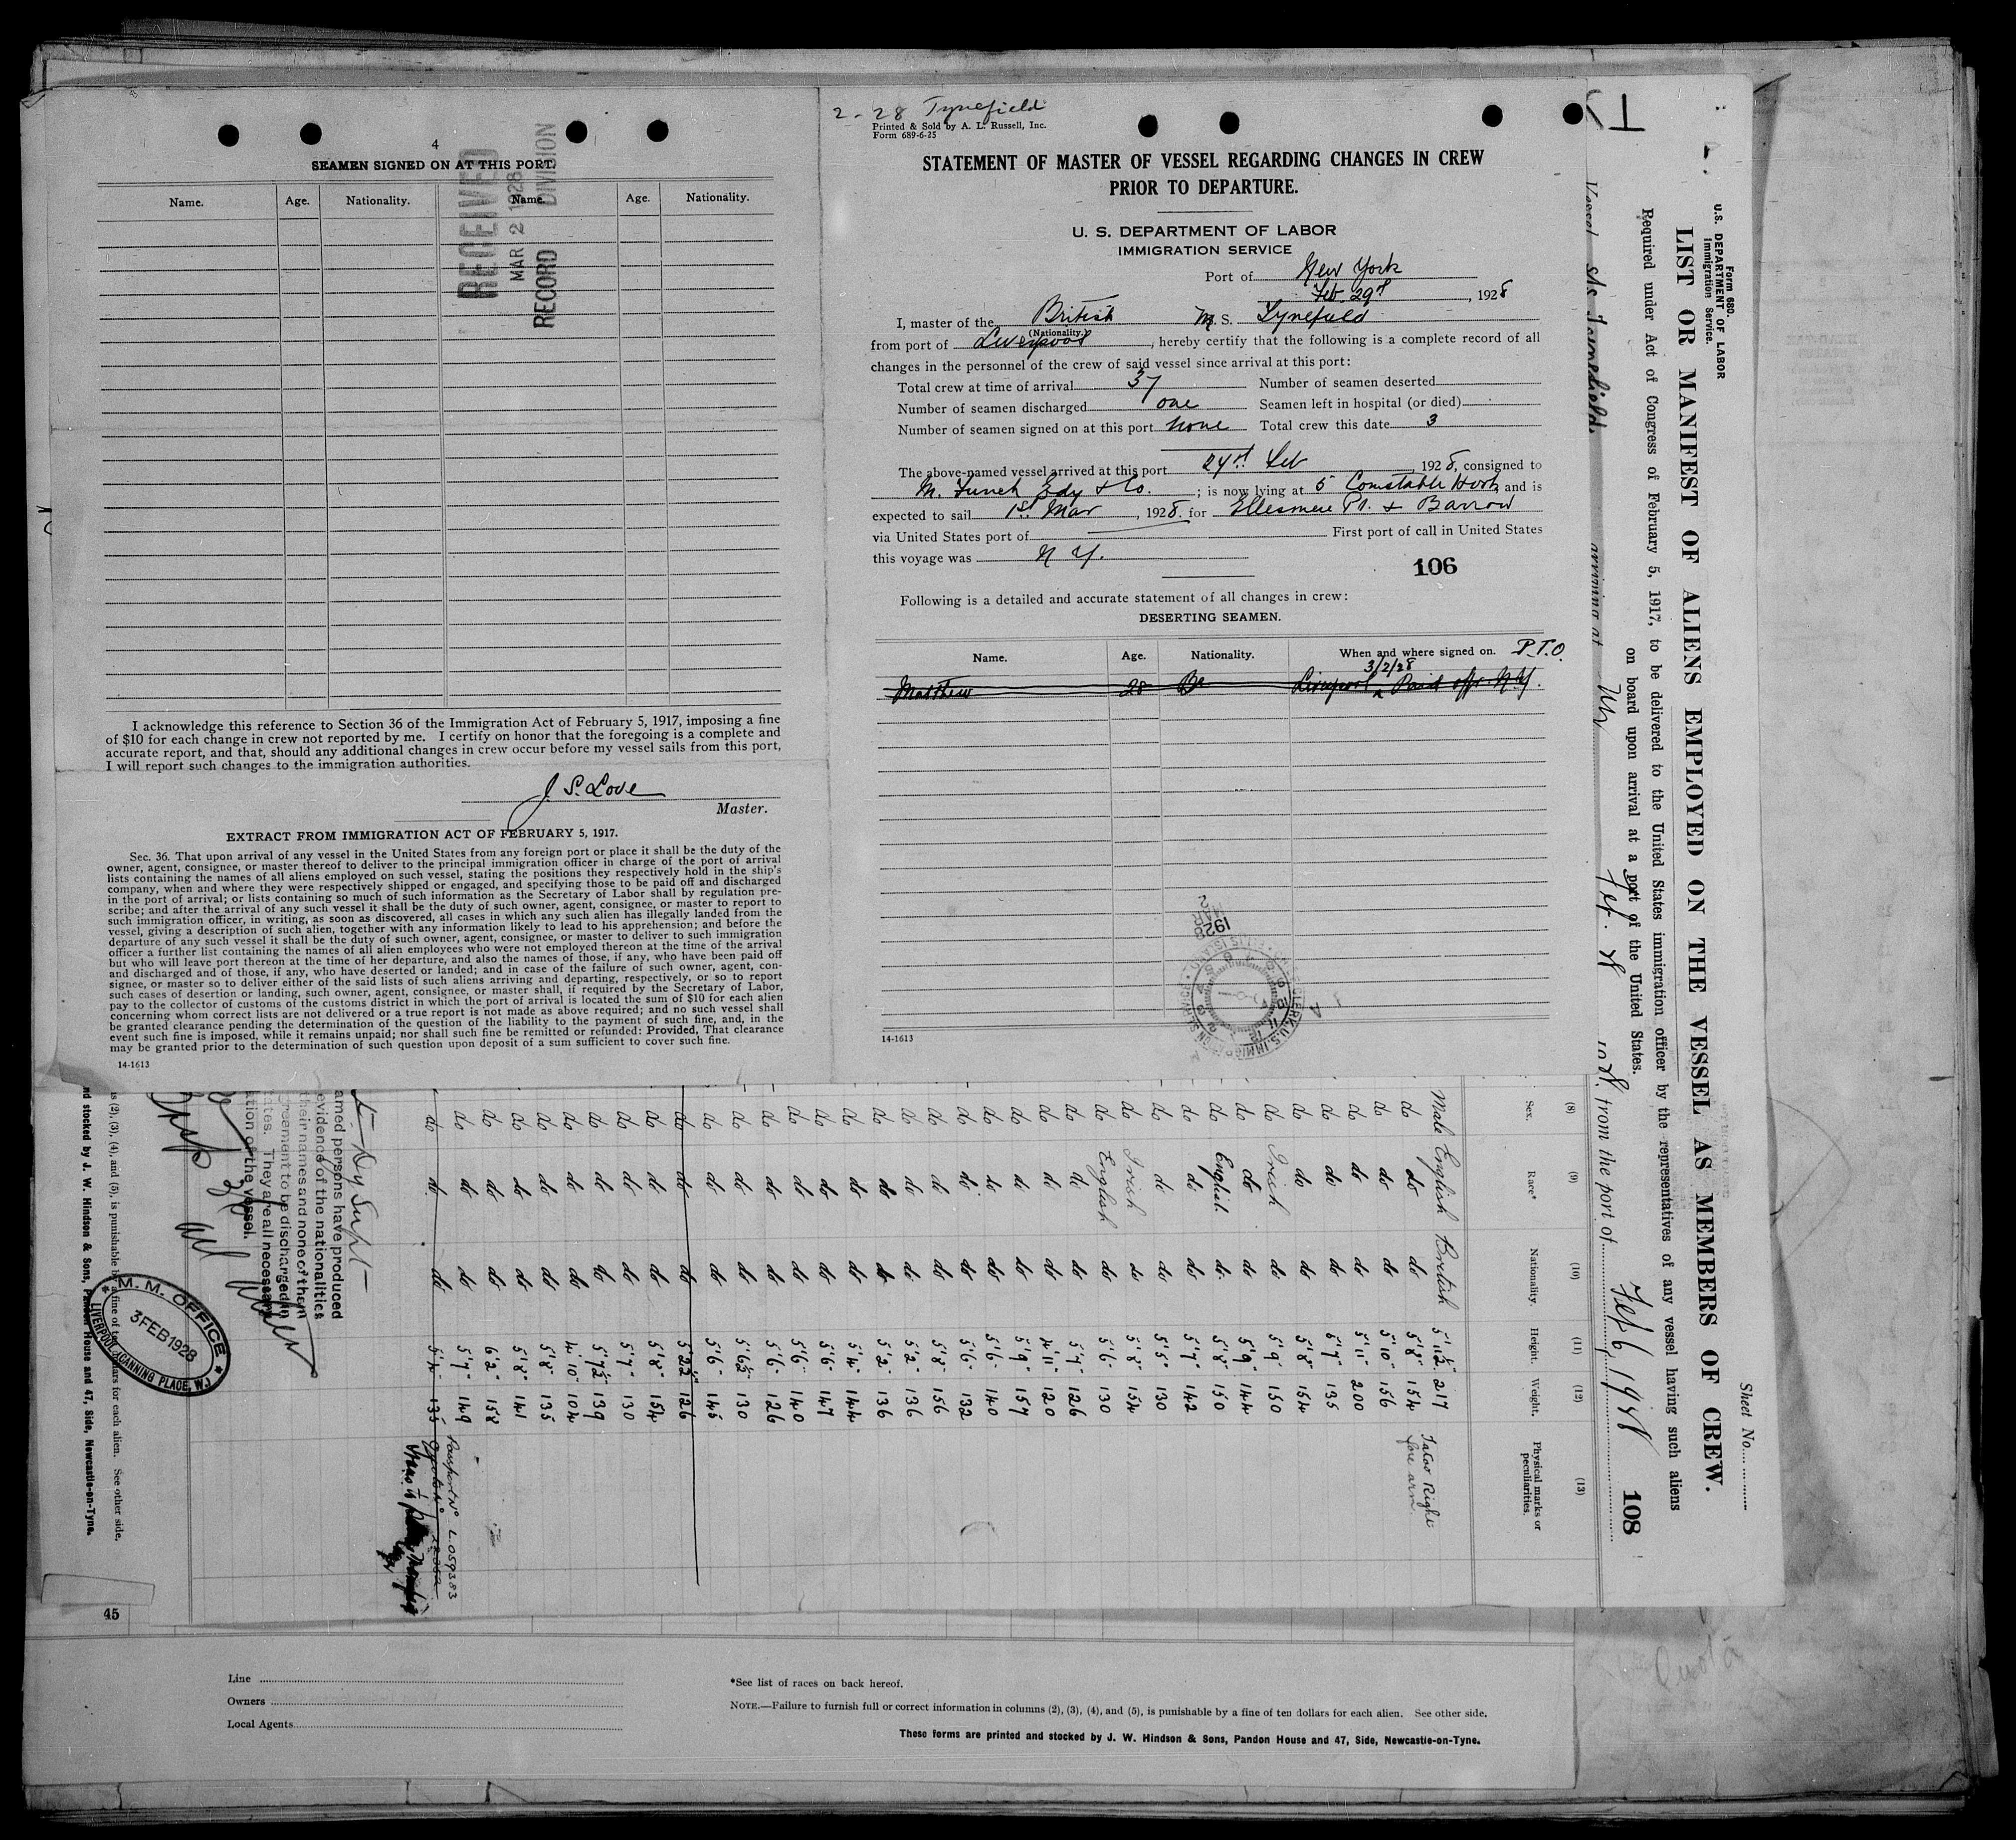 4
SEAMEN SIGNED ON AT THIS PORT.
Name. Age. Nationality. Name. Age. Nationality.
RECEIVED
MAR 2 1928
RECORD DIVISION
I acknowledge this reference to Section 36 of the Immigration Act of February 5, 1917, imposing a fine
of $10 for each change in crew not reported by me. I certify on honor that the foregoing is a complete and
accurate report, and that, should any additional changes in crew occur before my vessel sails from this port,
I will report such changes to the immigration authorities.
J. S. Love
Master.
EXTRACT FROM IMMIGRATION ACT OF FEBRUARY 5, 1917.
Sec. 36. That upon arrival of any vessel in the United States from any foreign port or place it shall be the duty of the
owner, agent, consignee, or master thereof to deliver to the principal immigration officer in charge of the port of arrival
lists containing the names of all aliens employed on such vessel, stating the positions they respectively hold in the ship's
company, when and where they were respectively shipped or engaged, and specifying those to be paid off and discharged
in the port of arrival; or lists containing so much of such information as the Secretary of Labor shall by regulation pre-
scribe; and after the arrival of any such vessel it shall be the duty of such owner, agent, consignee, or master to report to
such immigration officer, in writing, as soon as discovered, all cases in which any such alien has illegally landed from the
vessel, giving a description of such alien, together with any information likely to lead to his apprehension; and before the
departure of any such vessel it shall be the duty of such owner, agent, consignee, or master to deliver to such immigration
officer a further list containing the names of all alien employees who were not employed thereon at the time of the arrival
but who will leave port thereon at the time of her departure, and also the names of those, if any, who have been paid off
and discharged and of those, if any, who have deserted or landed; and in case of the failure of such owner, agent, con-
signee, or master so to deliver either of the said lists of such aliens arriving and departing, respectively, or so to report
such cases of desertion or landing, such owner, agent, consignee, or master shall, if required by the Secretary of Labor,
pay to the collector of customs of the customs district in which the port of arrival is located the sum of $10 for each alien
concerning whom correct lists are not delivered or a true report is not made as above required; and no such vessel shall
be granted clearance pending the determination of the question of the liability to the payment of such fine, and, in the
event such fine is imposed, while it remains unpaid; nor shall such fine be remitted or refunded: Provided, That clearance
may be granted prior to the determination of such question upon deposit of a sum sufficient to cover such fine.
14-1613
2-28 Tynefield
Printed & Sold by A. L. Russell, Inc.
Form 689-6-25
STATEMENT OF MASTER OF VESSEL REGARDING CHANGES IN CREW
PRIOR TO DEPARTURE.
U. S. DEPARTMENT OF LABOR
IMMIGRATION SERVICE
Port of New York
Feb. 29th, 1928
I, master of the British M. S. Tynefield
(Nationality.)
from port of Liverpool, hereby certify that the following is a complete record of all
changes in the personnel of the crew of said vessel since arrival at this port:
Total crew at time of arrival 37 Number of seamen deserted
Number of seamen discharged one Seamen left in hospital (or died)
Number of seamen signed on at this port none Total crew this date 3
The above-named vessel arrived at this port Feb 1928, consigned to
M. Funch Edy & Co.; is now lying at 5 Constable Hook and is
expected to sail 1st Mar, 1928. for Ellesmere Pt. & Barrow
via United States port of First port of call in United States
this voyage was N Y.
106
Following is a detailed and accurate statement of all changes in crew:
DESERTING SEAMEN.
Name. Age. Nationality. When and where signed on. P.T.O.
3/2/28
Matthew 28 Br Liverpool Paid off N.Y.
1928
MAR
2
14-1613
Sheet No.
Form 680.
U.S. DEPARTMENT OF LABOR
Immigration Service.
LIST OR MANIFEST OF ALIENS EMPLOYED ON THE VESSEL AS MEMBERS OF CREW.
Required under Act of Congress of February 5, 1917, to be delivered to the United States immigration officer by the representatives of any vessel having such aliens
on board upon arrival at a port of the United States.
Vessel Tynefield, arriving at from the port of
108
(8) (9) (10) (11) (12) (13)
Sex. Race* Nationality. Height. Weight. Physical marks or
peculiarities.
Male English British 5'11½" 217
do do do 5'8" 154 Right
fore arm
do do do 5'10" 156
do do do 5'11" 200
do do do 5'7" 135
do do do 5'8" 154
do Irish do 5'9" 150
do do do 5'9" 144
do English do 5'8" 150
do do do 5'7" 142
do do do 5'5" 130
do Irish do 5'8" 154
do English do 5'6" 130
do do do 5'7" 126
do do do 4'11" 120
do do do 5'9" 157
do do do 5'6" 140
do do do 5'6" 132
do do do 5'8" 156
do do do 5'2" 136
do do do 5'2" 136
do do do 5'4" 144
do do do 5'6" 147
do do do 5'6" 140
do do do 5'6" 126
do do do 5'6½" 130
do do do 5'6" 145
do do do 5'2½" 126
do do do 5'8" 154
do do do 5'7" 130
do do do 5'7½" 139
do do do 4'10" 104
do do do 5'8" 135
do do do 5'8" 141
do do do 6'2" 158
do do do 5'7" 149 Passport No L.059383
do do do 5'4" 135
amed persons have produced
evidence of the nationalities
their names and none of them
reement to be discharged in
tates. They are all necessary
tion of the vessel.
M. M. OFFICE
3 FEB 1928
LIVERPOOL (CANNING PLACE, W.)
is (2), (3), (4), and (5), is punishable by a fine of ten dollars for each alien. See other side.
nd stocked by J. W. Hindson & Sons, Pandon House and 47, Side, Newcastle-on-Tyne.
45
Line
Owners
Local Agents
*See list of races on back hereof.
NOTE.—Failure to furnish full or correct information in columns (2), (3), (4), and (5), is punishable by a fine of ten dollars for each alien. See other side.
These forms are printed and stocked by J. W. Hindson & Sons, Pandon House and 47, Side, Newcastle-on-Tyne.